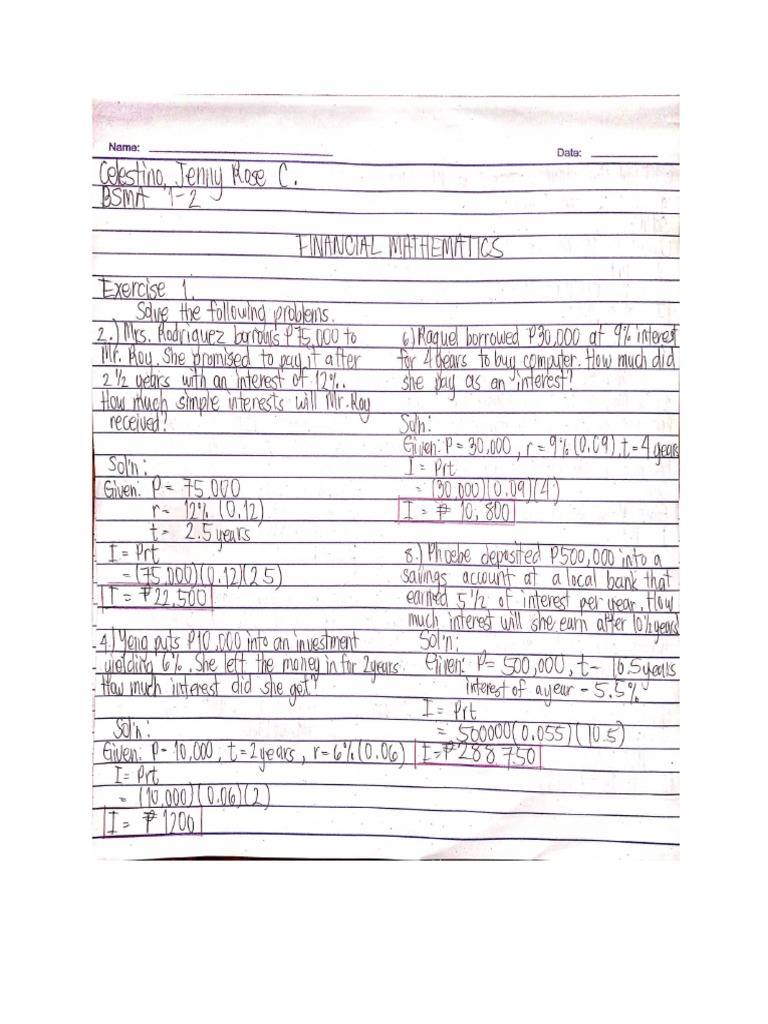 Name: ____________ Date: ____________
Celestino, Jenny Rose C.
BSMA 1-2
FINANCIAL MATHEMATICS
Exercise 1.
Solve the following problems.
2.) Mrs. Rodriquez borrows ₱75,000 to
Mr. Roy. She promised to pay it after
2 ½ years with an interest of 12%.
How much simple interests will Mr. Roy
received?
Sol'n:
Given: P = 75,000
r = 12% (0.12)
t = 2.5 years
I = Prt
= (75,000)(0.12)(2.5)
I = ₱22,500
4.) Yeng puts ₱10,000 into an investment
yielding 6%. She left the money in for 2 years.
How much interest did she got?
Sol'n:
Given: P = 10,000, t = 2 years, r = 6% (0.06)
I = Prt
= (10,000)(0.06)(2)
I = ₱1200
6.) Raquel borrowed ₱30,000 at 9% interest
for 4 years to buy computer. How much did
she pay as an interest?
Sol'n:
Given: P = 30,000, r = 9% (0.09), t = 4 years
I = Prt
= (30,000)(0.09)(4)
I = ₱ 10,800
8.) Phoebe deposited ₱500,000 into a
savings account at a local bank that
earned 5 ½ of interest per year. How
much interest will she earn after 10 ½ years
Sol'n:
Given: P = 500,000, t - 10.5 years
interest of a year - 5.5%
I = Prt
= 500000(0.055)(10.5)
I = ₱288 750